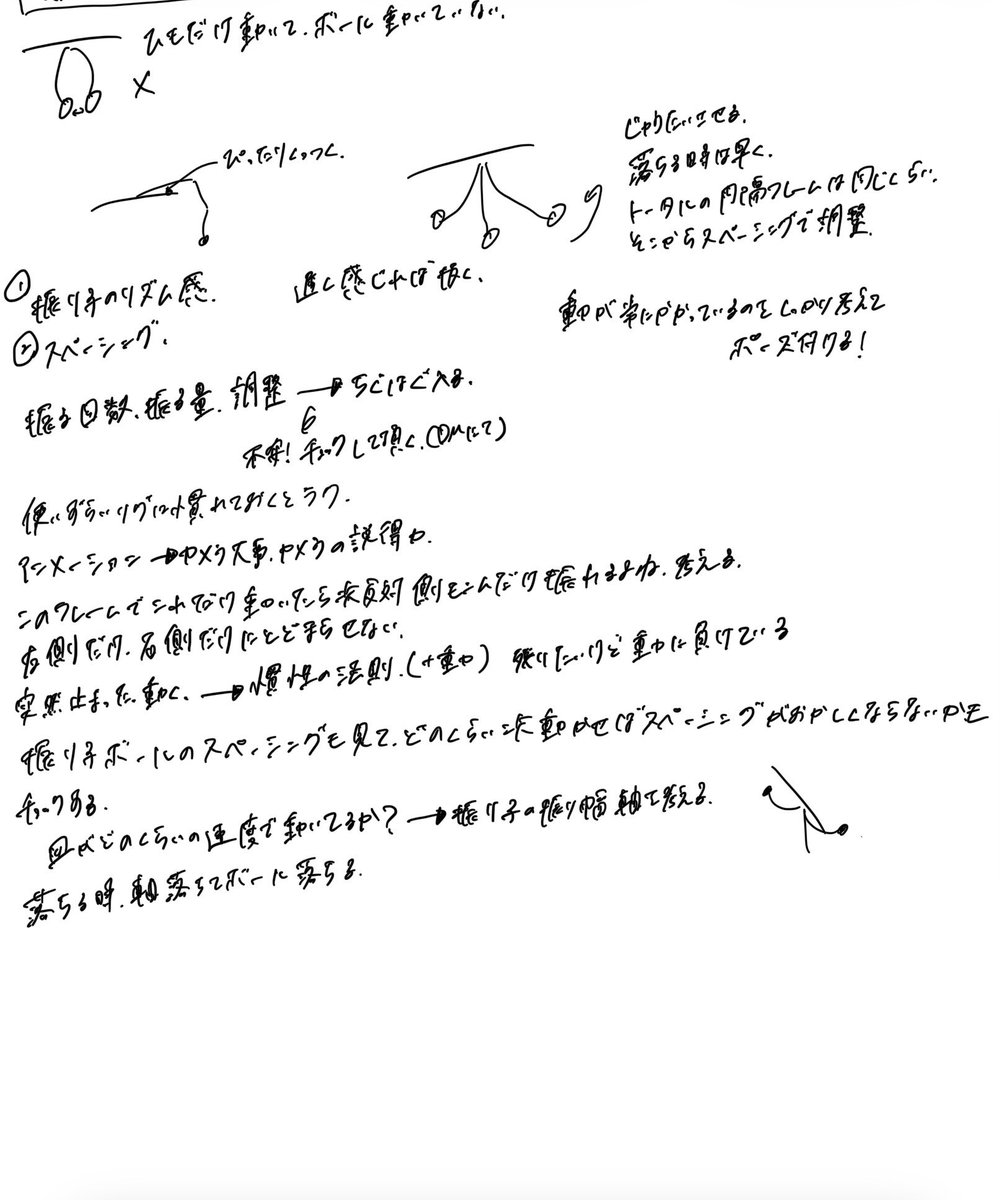 ひもだけ動いて、ボール動いていない。
×
ぴったりくっつく。
じゅうたいさせる。
落ちる時は早く。
トータルの間隔フレームは同じくらい。
そこからスペーシングで調整。
① 振り子のリズム感。
遅く感じれば抜く。
② スペーシング。
重力が常にかかっているのをしっかり考えて
ポーズ付ける！
振る回数、振る量、調整 → ちぐはぐ入る。
不安！チェックして頂く。
使いづらいリグには慣れておくとラク。
アニメーション → カメラ大事、カメラの説得力。
このフレームでこれだけ動いたら次反対側もこんだけ振れるよね、考える。
左側だけ、右側だけにとどまらせない。
突然止まった、動く、 → 慣性の法則、(+重力) 張りたいけど重力に負けている
振り子ボールのスペーシングも見て、どのくらい次動かせばスペーシングがおかしくならないかも
チェックする。
皿がどのくらいの速度で動いてるか？ → 振り子の振り幅軸で考える。
落ちる時、軸落ちてボール落ちる。